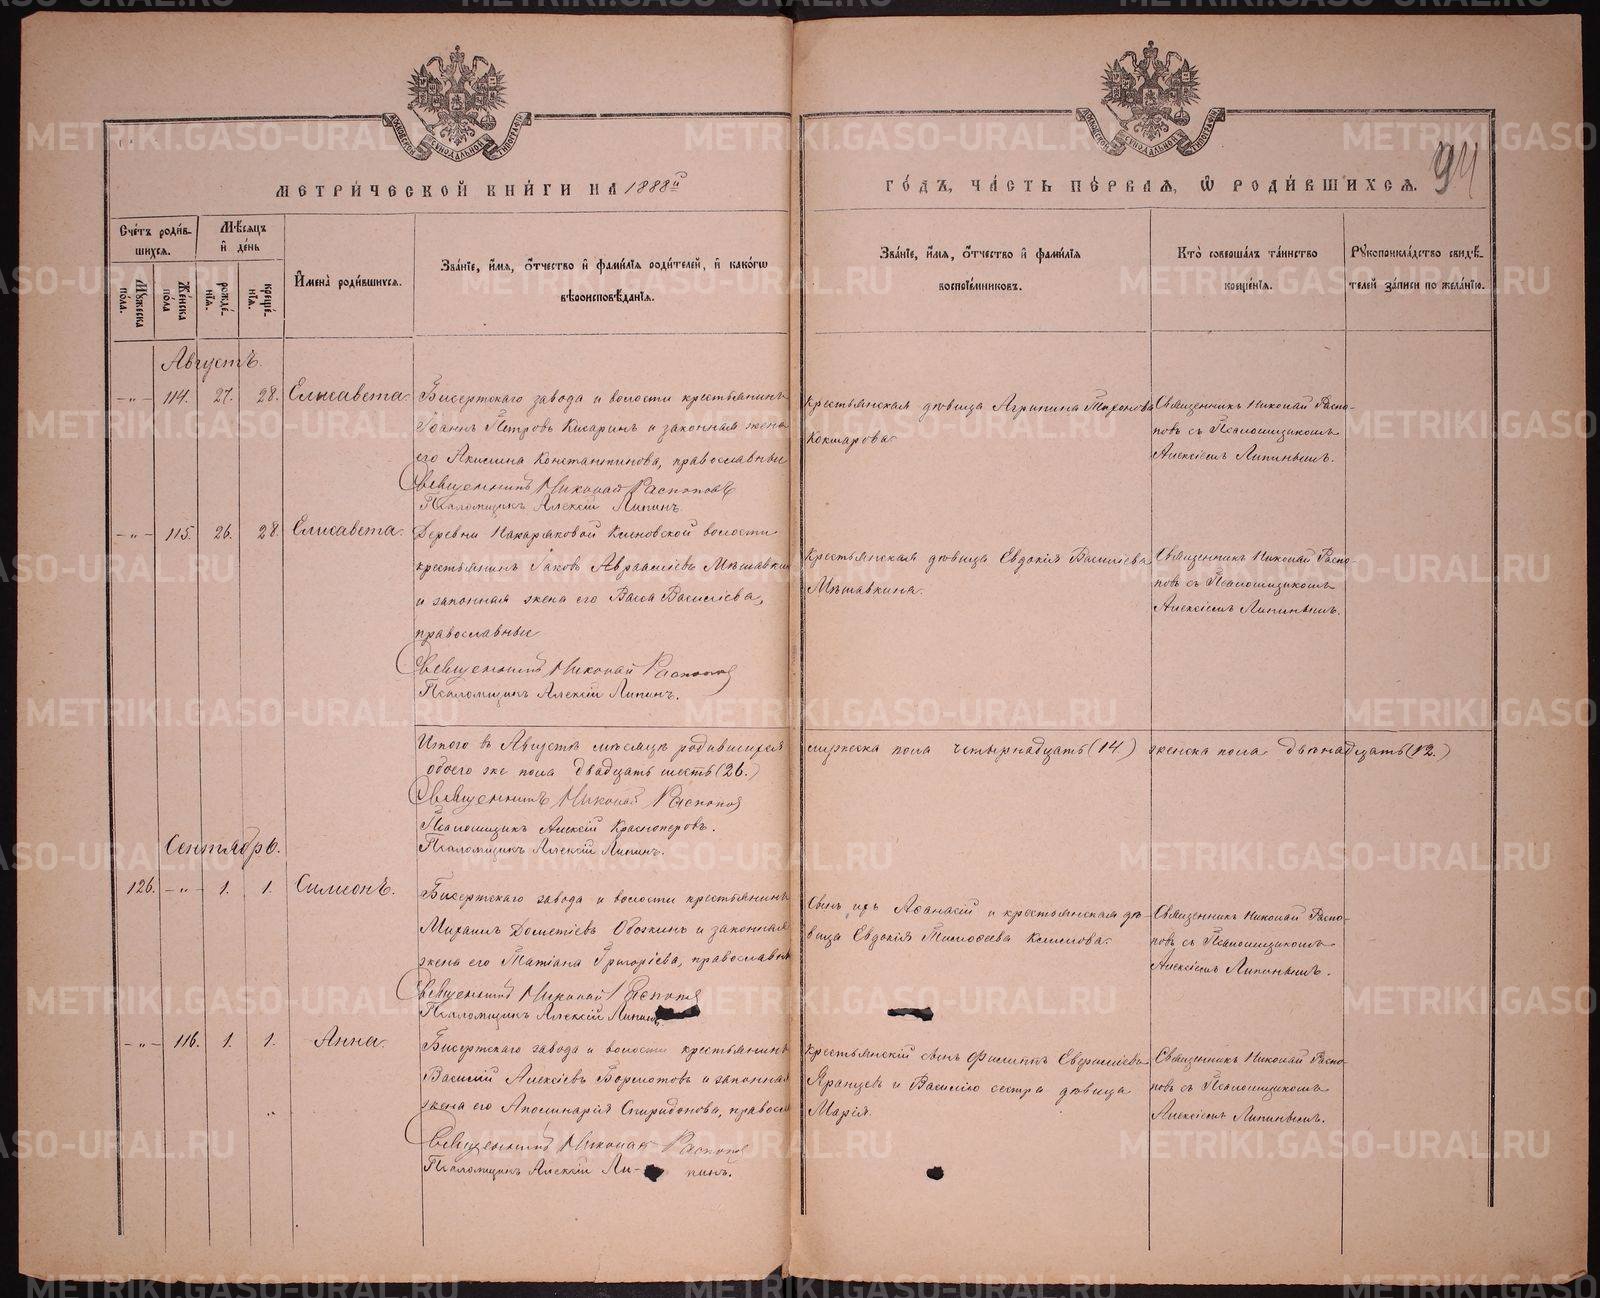 МЕТРИ́ЧЕСКОЙ КНИ́ГИ НА 1888й
ГО́ДЪ, ЧА́СТЬ ПЕ́РВАЯ, Ѿ РОДИ́ВШИХСЯ.
94
Сче́тъ роди́в-
шихся.
Мѣ́сяцъ
и҆ де́нь
Му́жеска
пола.
Же́нска
по́ла
рожде́-
нїя.
креще́-
нїя.
И҆мена̀ роди́вшихся.
Зва́нїе, и҆́мя, ѻ҆́тчество и҆ фами́лїя роди́телей, и҆ како́гѡ
вѣроисповѣ́данїя.
Зва́нїе, и҆́мя, ѻ҆́тчество и҆ фами́лїя
воспрїе́мниковъ.
Кто̀ соверша́лъ та́инство
креще́нїя.
Рꙋкоприкла́дство свидѣ́-
телей за́писи по жела́нїю.
Августъ.
-"- 114. 27. 28. Елисавета
Бисертскаго завода и волости крестьянинъ
Іоаннъ Петровъ Кисаринъ и законная жена
его Акилина Константинова, православные
Священникъ Николай Распоповъ
Псаломщикъ Алексій Липинъ.
Крестьянская дѣвица Агрипина Тихонова
Кокшарова
Священникъ Николай Распо-
повъ съ Псаломщикомъ
Алексіемъ Липинымъ.
-"- 115. 26. 28. Елисавета.
Деревни Накаряковой Кленовской волости
крестьянинъ Іаковъ Аврааміевъ Мѣшавкинъ
и законная жена его Васса Василіева,
православные
Священникъ Николай Распоповъ
Псаломщикъ Алексій Липинъ.
Крестьянская дѣвица Евдокія Василіева
Мѣшавкина.
Священникъ Николай Распо-
повъ съ Псаломщикомъ
Алексіемъ Липинымъ.
Итого въ Августѣ мѣсяцѣ родившихся мужеска пола четырнадцать (14.) женска пола двѣнадцать (12.)
обоего же пола двадцать шесть (26.)
Священникъ Николай Распоповъ
Псаломщикъ Алексій Красноперовъ.
Псаломщикъ Алексій Липинъ.
Сентябрь.
126. -"- 1. 1. Симеонъ.
Бисертскаго завода и волости крестьянинъ
Михаилъ Дометіевъ Обоскинъ и законная
жена его Татіана Григоріева, православные
Священникъ Николай Распоповъ
Псаломщикъ Алексій Липинъ
Сынъ ихъ Аѳанасій и крестьянская дѣ-
вица Евдокія Тимоѳеева Климова.
Священникъ Николай Распо-
повъ съ Псаломщикомъ
Алексіемъ Липинымъ.
-"- 116. 1. 1. Анна.
Бисертскаго завода и волости крестьянинъ
Василій Алексіевъ Бормотовъ и законная
жена его Аполинарія Спиридонова, правосл
Священникъ Николай Распоповъ
Псаломщикъ Алексій Ли- пинъ.
Крестьянскій сынъ Филиппъ Евфиміевъ
Яранцевъ и Василію сестра дѣвица
Марія.
Священникъ Николай Распо-
повъ съ Псаломщикомъ
Алексіемъ Липинымъ.
METRIKI.GASO-URAL.RU